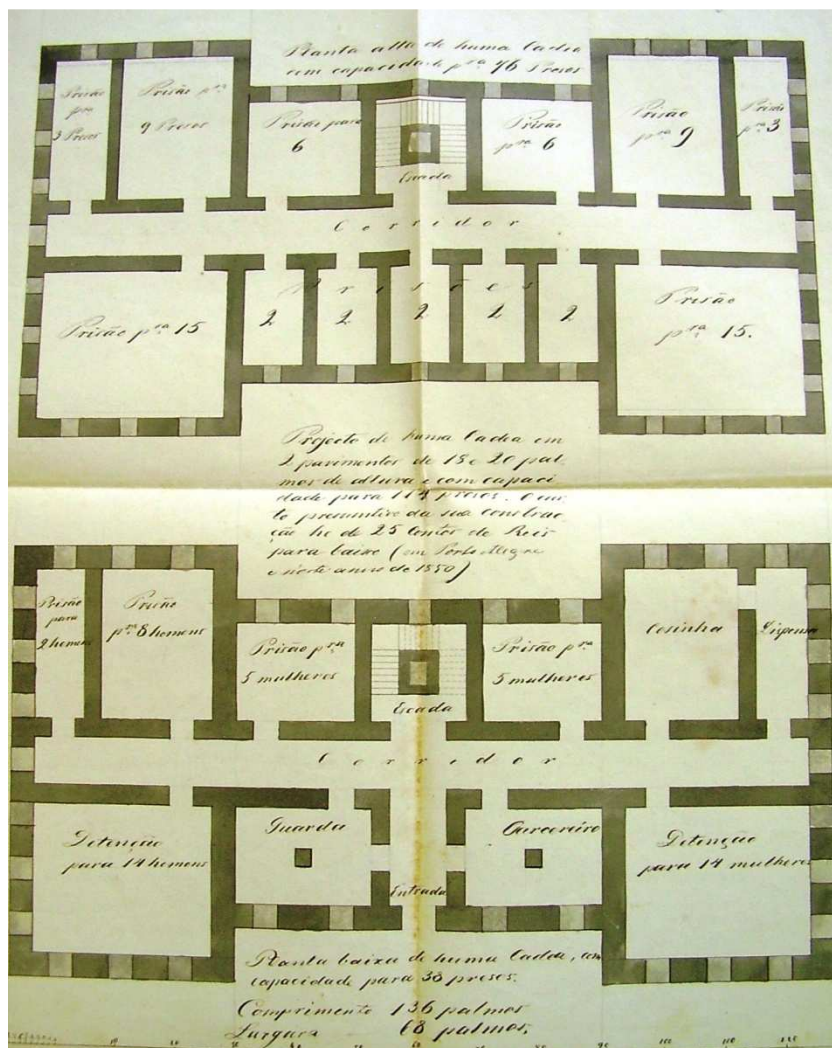 Planta alta de huma Cadea
com capacidade pra 76 Presos
Prisão
pra
3 Presos
Prisão pra
9 Presos
Prisão para
6
Escada
Prisão
pra 6
Prisão
pra 9
Prisão
pra 3
Corridor
Prisões
Prisão pra 15
2
2
2
2
2
Prisão
pra 15.
Projecto de huma Cadea em
2 pavimentos de 18 e 20 pal-
mos de altura e com capaci-
dade para 114 presos. O cus-
to presumtivo da sua construc-
ção he de 25 Contos de Reis
para baixo (em Porto Alegre
e neste anno de 1850)
Prisão
para
2 homens
Prisão
pra 8 homens
Prisão pra
5 mulheres
Escada
Prisão pra
5 mulheres
Cosinha
Dispensa
Corridor
Detenção
para 14 homens
Guarda
Entrada
Carcereiro
Detenção
para 14 mulheres
Planta baixa de huma Cadea, com
capacidade para 38 presos.
Comprimento 136 palmos
Largura 68 palmos.
10 90 100 110 120